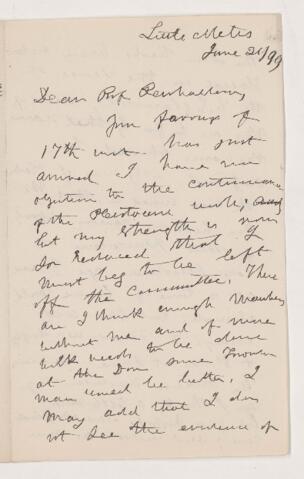 Little Metis
June 21/99
Dear Prof Penhallow
Your favour of
17th inst. has just
arrived I have no
objection to the continuance
of the Pleistocene work;
but my strength is now
so reduced that I
must beg to be left
off the Committee. There
are I think enough members
without me and if more
work needs to be done
at the Don some Toronto
man would be better. I
may add that I do
not see the evidence of